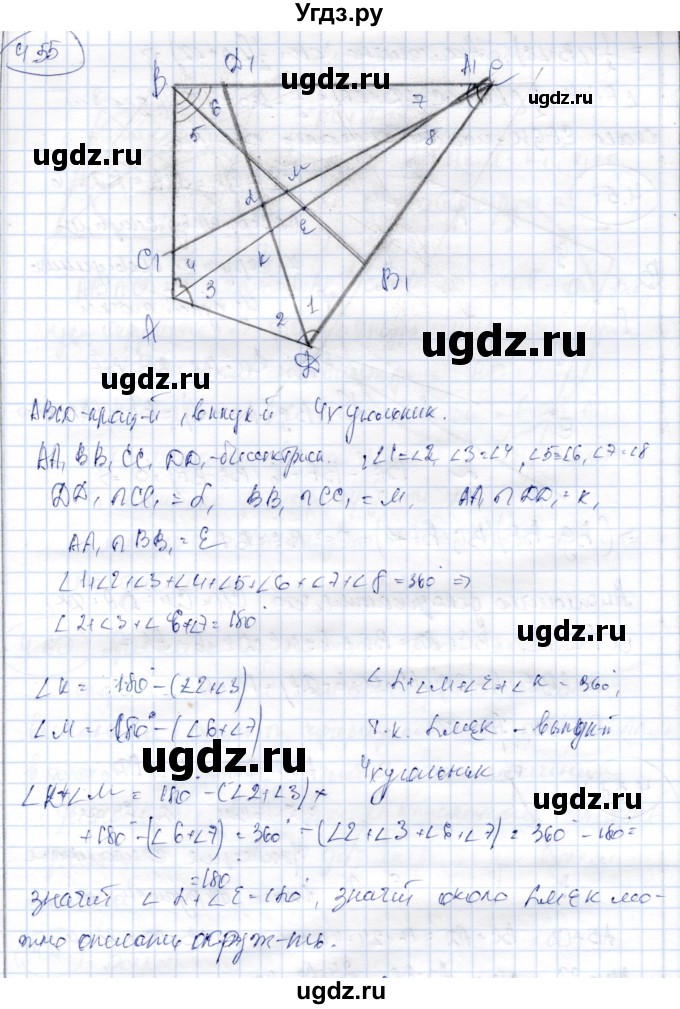 Угдз.ру
455
B D1 A1 C
ugdz.ru ugdz.ru
6 7
5 8
ugdz.ru
M
L E
C1 4 K B1
3 1
A 2
ugdz.ru
ugdz.ru
Д
ABCD-произ-й, выпукл-й 4хугольник.
AA1 BB1 CC1 DD1-биссектриса. ∠1=∠2, ∠3=∠4, ∠5=∠6, ∠7=∠8
DD1∩CC1=L, BB1∩CC1=M, AA1∩DD1=K,
AA1∩BB1=E
∠1+∠2+∠3+∠4+∠5+∠6+∠7+∠8=360° ⇒
∠2+∠3+∠6+∠7=180°
ugdz.ru
∠K=180°-(∠2+∠3) ∠L+∠M+∠E+∠K=360°,
∠M=180°-(∠6+∠7) т.к. LMEK - выпукл-й
ugdz.ru 4хугольник
∠K+∠M=180°-(∠2+∠3)+
+180°-(∠6+∠7)=360°-(∠2+∠3+∠6+∠7)=360°-180°=
=180°
значит ∠L+∠E=180°, значит около LMEK мо-
жно описать окруж-ть.
ugdz.ru
ugdz.ru